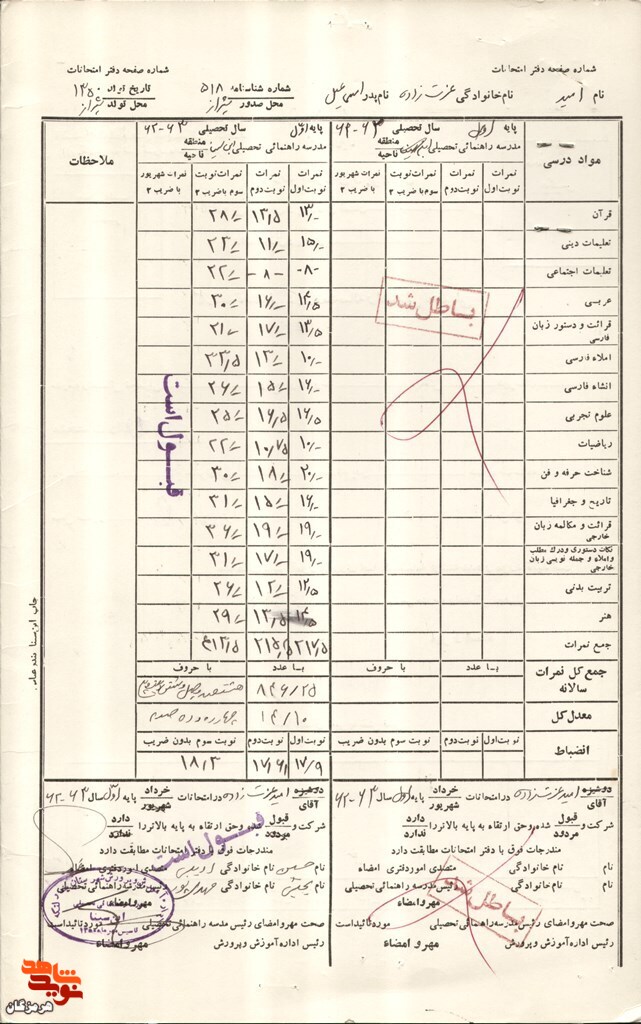 شماره صفحه دفتر امتحانات
شماره صفحه دفتر امتحانات
نام امید نام خانوادگی عزت زاده نام پدر اسمعیل شماره شناسنامه ۵۱۸ محل صدور شیراز تاریخ تولد ۱۳۵۰ محل تولد شیراز
مواد درسی
پایه اول سال تحصیلی ۶۳-۶۲
مدرسه راهنمائی تحصیلی منطقه ناحیه
نمرات نوبت اول
نمرات نوبت دوم
نمرات نوبت سوم با ضریب ۲
نمرات شهریور با ضریب ۳
پایه اول سال تحصیلی ۶۳-۶۲
مدرسه راهنمائی تحصیلی ابن سینا منطقه ناحیه
نمرات نوبت اول
نمرات نوبت دوم
نمرات نوبت سوم با ضریب ۲
نمرات شهریور با ضریب ۳
ملاحظات
قرآن ۱۳/- ۱۳/۵ ۲۸/-
تعلیمات دینی ۱۵/- ۱۱/- ۲۳/-
تعلیمات اجتماعی -۸- -۸- ۲۲/-
عربی ۱۴/۵ ۱۶/- ۳۰/-
قرائت و دستور زبان فارسی ۱۳/۵ ۱۷/- ۲۱/-
املاء فارسی ۱۰/- ۱۳/- ۳۳/۵
انشاء فارسی ۱۶/- ۱۵/- ۲۶/-
علوم تجربی ۱۶/۵ ۱۶/۵ ۲۵/-
ریاضیات ۱۰/- ۱۰/۷۵ ۲۲/-
شناخت حرفه و فن ۲۰/- ۱۸/- ۳۰/-
تاریخ و جغرافیا ۱۶/- ۱۵/- ۳۱/-
قرائت و مکالمه زبان خارجی ۱۹/- ۱۹/- ۳۶/-
نکات دستوری و درک مطلب و املاء و جمله نویسی زبان خارجی ۱۹/- ۱۷/- ۳۱/-
تربیت بدنی ۱۲/۵ ۱۲/- ۲۶/-
هنر ۱۴/۵ ۱۳/۵ ۲۹/-
جمع نمرات ۲۱۷/۵ ۲۱۵/۵ ۴۱۳/۵
باطل شد
قبول است
جمع کل نمرات سالانه
با عدد
با حروف
با عدد
با حروف
۸۴۶/۲۵
معدل کل
۱۴/۱۰
چهارده و ده صدم
انضباط
نوبت اول
نوبت دوم
نوبت سوم بدون ضریب
نوبت اول
نوبت دوم
نوبت سوم بدون ضریب
۱۷/۹ ۱۷/۶ ۱۸/۳
دوشیزه آقای امید عزت زاده در امتحانات خرداد شهریور پایه اول سال ۶۳-۶۲
شرکت و قبول مردود شده و حق ارتقاء به پایه بالاتر را دارد ندارد
مندرجات فوق با دفتر امتحانات مطابقت دارد
نام نام خانوادگی متصدی امور دفتری امضاء
نام نام خانوادگی رئیس مدرسه راهنمائی تحصیلی
مهر و امضاء
صحت مهر و امضای رئیس مدرسه راهنمائی تحصیلی مورد تائید است
رئیس اداره آموزش و پرورش مهر و امضاء
باطل شد
دوشیزه آقای امید عزت زاده در امتحانات خرداد شهریور پایه اول سال ۶۳-۶۲
شرکت و قبول مردود شده و حق ارتقاء به پایه بالاتر را دارد ندارد
مندرجات فوق با دفتر امتحانات مطابقت دارد
نام حسین نام خانوادگی متصدی امور دفتری امضاء
نام نام خانوادگی رئیس مدرسه راهنمائی تحصیلی
مهر و امضاء
صحت مهر و امضای رئیس مدرسه راهنمائی تحصیلی مورد تائید است
رئیس اداره آموزش و پرورش مهر و امضاء
قبول است
ابن سینا
نوید شاهد
هرمزگان